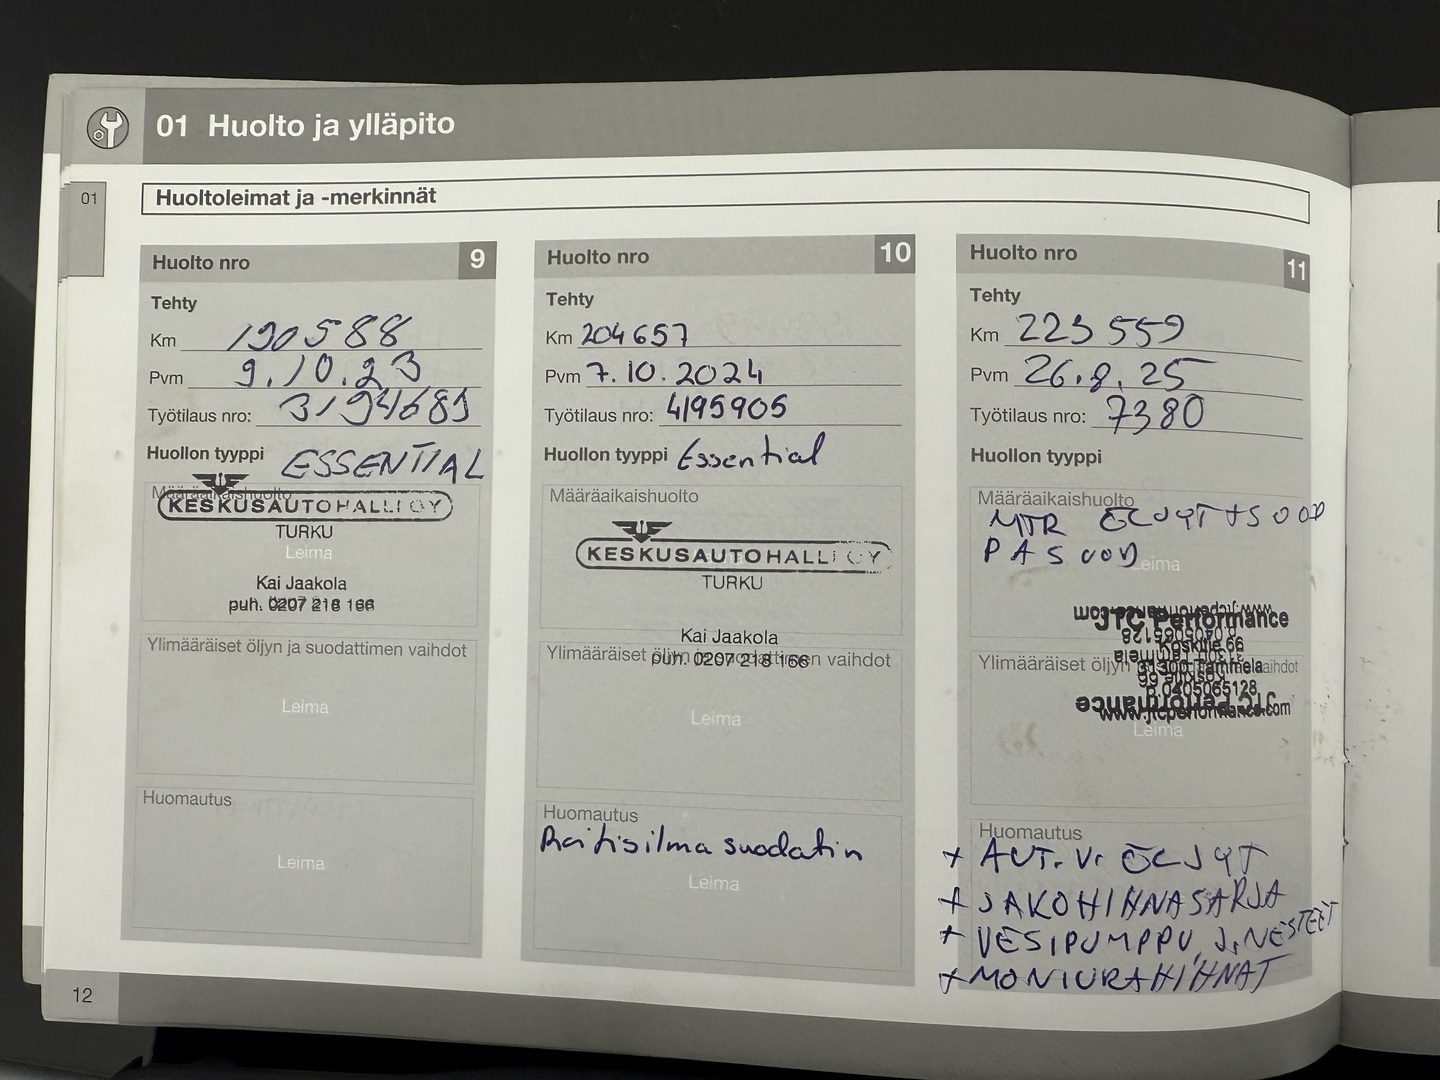 01 Huolto ja ylläpito
01
Huoltoleimat ja -merkinnät
Huolto nro 9
Tehty
Km 190588
Pvm 9.10.23
Työtilaus nro: 3194689
Huollon tyyppi ESSENTIAL
Määräaikaishuolto
KESKUSAUTOHALLI OY
TURKU
Leima
Kai Jaakola
puh. 0207 218 166
Ylimääräiset öljyn ja suodattimen vaihdot
Leima
Huomautus
Leima
Huolto nro 10
Tehty
Km 204657
Pvm 7.10.2024
Työtilaus nro: 4195905
Huollon tyyppi Essential
Määräaikaishuolto
KESKUSAUTOHALLI OY
TURKU
Kai Jaakola
Ylimääräiset öljyn ja suodattimen vaihdot
puh. 0207 218 166
Leima
Huomautus
Raitisilma suodatin
Leima
Huolto nro 11
Tehty
Km 223559
Pvm 26.8.25
Työtilaus nro: 7380
Huollon tyyppi
Määräaikaishuolto
MTR ÖLJYT + SUOD
PA SUOD
Leima
JTC Performance
Koskitie 66
Ylimääräiset öljyn vaihdot
31300 Tammela
p.0405065128
www.jtcperformance.com
Leima
Huomautus
+ AUT. V. ÖLJYT
+ JAKOHIHNASARJA
+ VESIPUMPPU, J.NESTEET
+ MONIURAHIHNAT
12